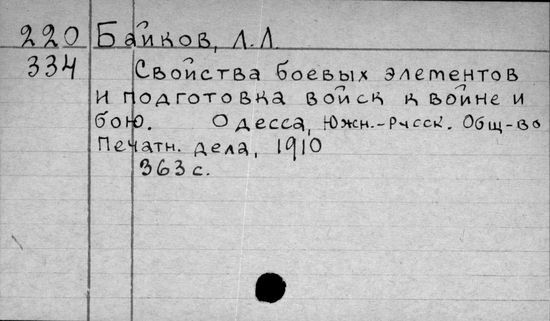 220 Байков, Л.Л.
334 Свойства боевых элементов
и подготовка войск к войне и
бою. Одесса, Южн.-русск. Общ-во
Печатн. дела, 1910
363 с.